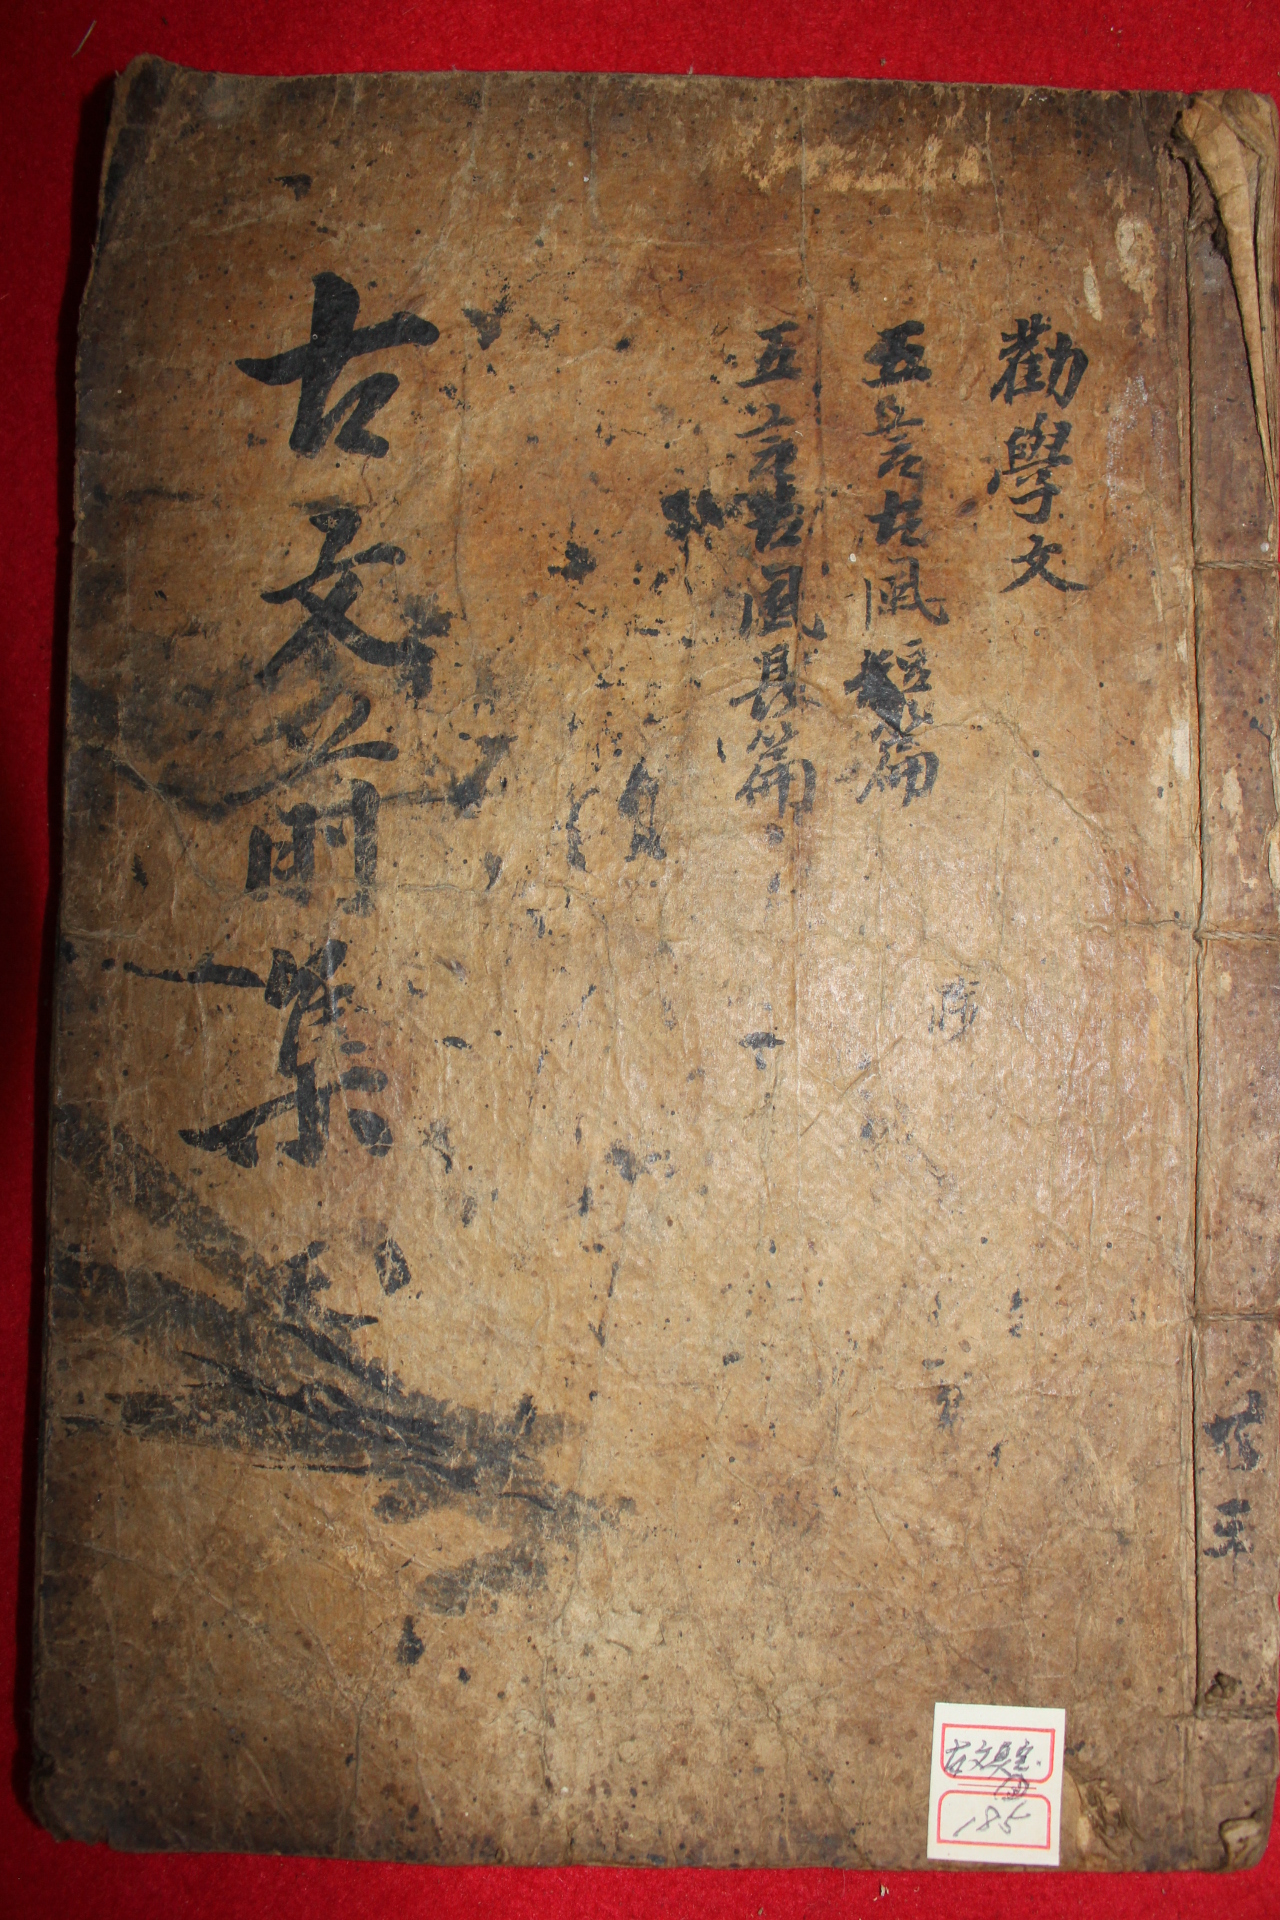 勸學文
五言古風短篇
五言古風長篇
古文前集
古文真宝
185